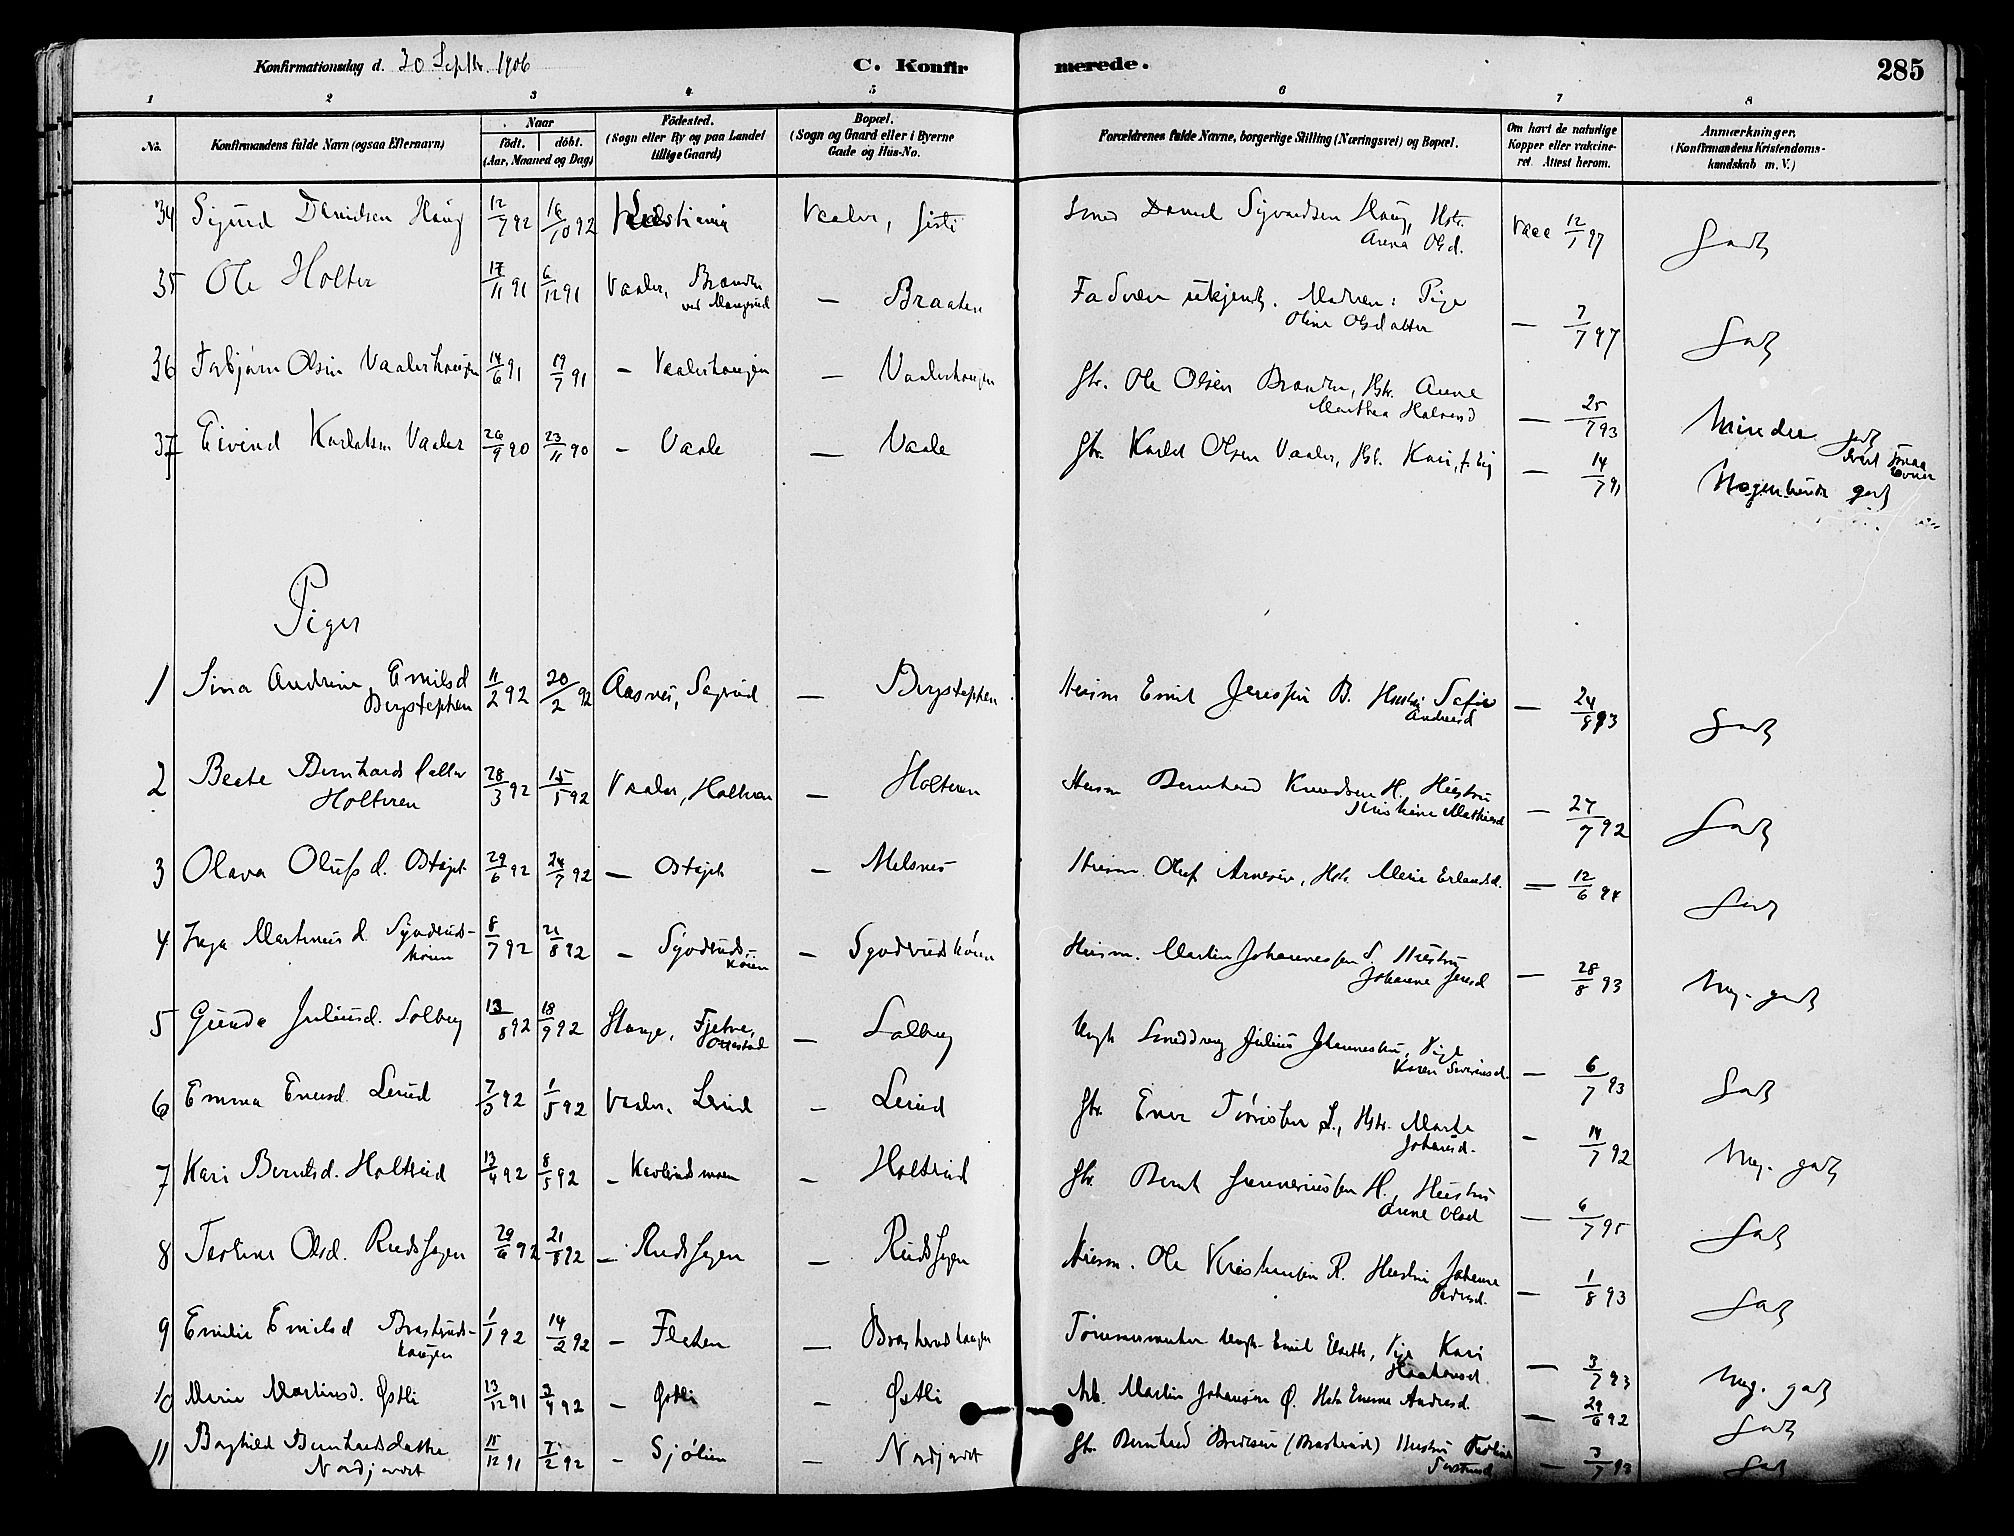 Konfirmationsdag d. 30 Septbr. 1906
C. Konfirmerede.
285
1 2 3 4 5 6 7 8
No.
Konfirmandens fulde Navn (ogsaa Efternavn)
Naar
födt. döbt.
(Aar, Maaned og Dag)
Födested.
(Sogn eller By og paa Landet
tillige Gaard)
Bopæl.
(Sogn og Gaard eller i Byerne
Gade og Hus-No.
Forældrenes fulde Navne, borgerlige Stilling (Næringsvei) og Bopæl.
Om havt de naturlige
Kopper eller vakcine-
ret. Attest herom.
Anmærkninger,
(Konfirmandens Kristendoms-
kundskab m. V.)
34 Sigurd Danielsen Haug 12/7 92 16/10 92 Vaaler, Daniel Sigvardsen Haug, Hstr. Vacc 12/1 97 Godt
Anna Olsd.
35 Ole Holter 17/11 91 6/12 91 Vaaler, Braaten — Braaten Faderen ukjendt. Moderen: Pige — 7/7 97 Godt
Oline Olsdatter
36 Torbjørn Olsen Vaalerhaugen 14/6 91 19/7 91 — Vaalerhaugen — Vaalerhaugen Gbr. Ole Olsen Braaten, Hstr. Anne — 25/7 93 Mindre godt
Marthea Halvorsd
37 Eivind Karlsen Vaaler 26/9 90 23/11 90 — Vaale — Vaale Gbr. Olsen Vaaler, Hst. Kari — 14/7 91 Nogenlunde godt
Piger
1 Sina Andrine Emilsd 11/2 92 20/2 92 Aasnes, Sagrud — Bergstephen Husm Emil Jensen B. Hustru Sofie — 24/8 93 Godt
Bergstephen
Andersd
2 Beate Bernhardsdatter 28/3 92 15/5 92 Vaaler, Holteren — Holteren Husm Bernhard Knudsen H. Hustru — 27/7 92 Godt
Holteren
Kristine Mathiesd
3 Olava Olufsd. 29/6 92 24/7 92 — — Melsnes Husm. Oluf Arnesen, Hstr. Marie Erlandsd. — 12/6 94 Godt
4 Inga Martinusd. Synderuds- 8/7 92 21/8 92 — Synderuds- — Synderudkøien Husm. Martin Johannessen S. Hustru — 28/8 93 Meg. godt
køien
køien
Johanne Jensd
5 Gunda Juliusd. Solberg 13/8 92 18/9 92 Stange, Fjetre, — Solberg Ungk Smeddreng Julius Johannessen, Pige — 6/7 93 Godt
Ottestad
Karen Severinsd.
6 Emma Enersd. Lerud 7/3 92 1/5 92 Vaaler, Lerud — Lerud Gbr. Ener Tørrisen L., Hstr. Marte — 14/7 92 Meg. godt
Johansd.
7 Kari Berntsd. Holterud 13/4 92 8/5 92 — — Holterud Gbr. Bernt H. Hustru — 6/7 95 Godt
Anne Olsd
8 Teoline Olsd. Rudshagen 29/6 92 21/8 92 — Rudshagen — Rudshagen Husm. Ole Kristiansen R. Hustru Johanne — 1/8 93 Godt
Pedersd.
9 Emilie Emilsd Braskerud- 1/1 92 14/2 92 — Flaten — Braskerudhaugen Tømmermester Ungk. Emil, Pige Kari — 3/7 93 Meg. godt
haugen
Haakensd.
10 Marie Martinsd. Østli 13/12 91 3/4 92 — Østli — Østli Arb. Martin Johansen Ø. Hstr Emma Andersd. — 29/6 92 Godt
11 Borghild Bernhardsdatter 15/12 91 7/2 92 — Sjølien — Nordjordet Gbr Bernhard Bredesen (Braskerud) Hustru — 3/7 93 Godt
Nordjordet